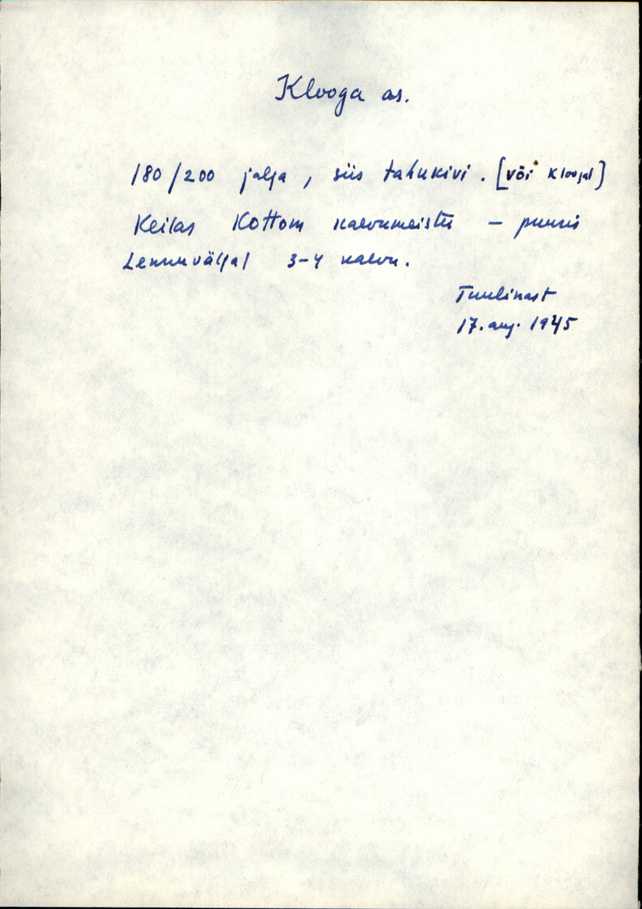 Klooga as.
180/200 jalga, siis tahukivi. [või Kloogal]
Keilas Kottom kaevumeister – puuris
Lennuväljal 3–4 kaevu.
Tuulinast
17. aug. 1945